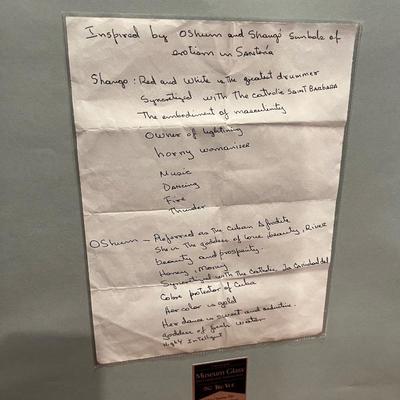 Inspired by Oshum and Shango symbols of
erotism in Santería
Shango: Red and White is the greatest drummer
Syncretized with the Catholic Saint Barbara
The embodiment of masculinity
Owner of lightning
horny womanizer
Music
Dancing
Fire
Thunder
Oshum – Referred as the Cuban Afrodite
She is the goddess of love, beauty, River
beauty and prosperity.
Honey, Money
Syncretized with the Catholic La Caridad del
Cobre protector of Cuba
Her color is gold
Her dance is sweet and seductive.
goddess of fresh water
Highly Intelligent
Museum Glass